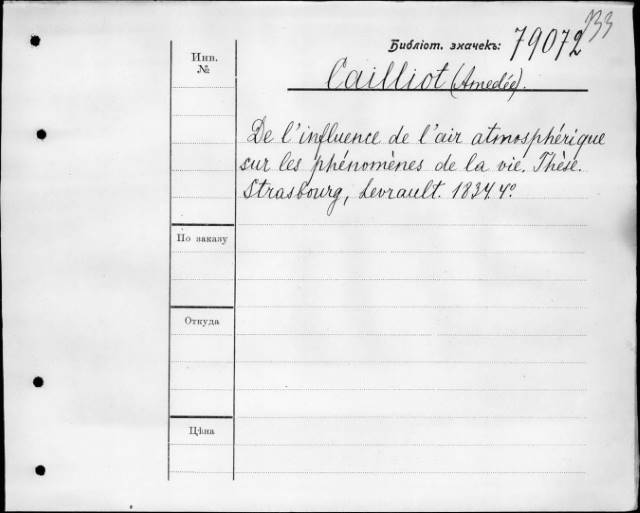 33
Библіот. значекъ: 79072
Инв.
№
Cailliot (Amedée).
De l'influence de l'air atmosphérique
sur les phénomènes de la vie. Thèse.
Strasbourg, Levrault. 1834. 4º
По заказу
Откуда
Цѣна